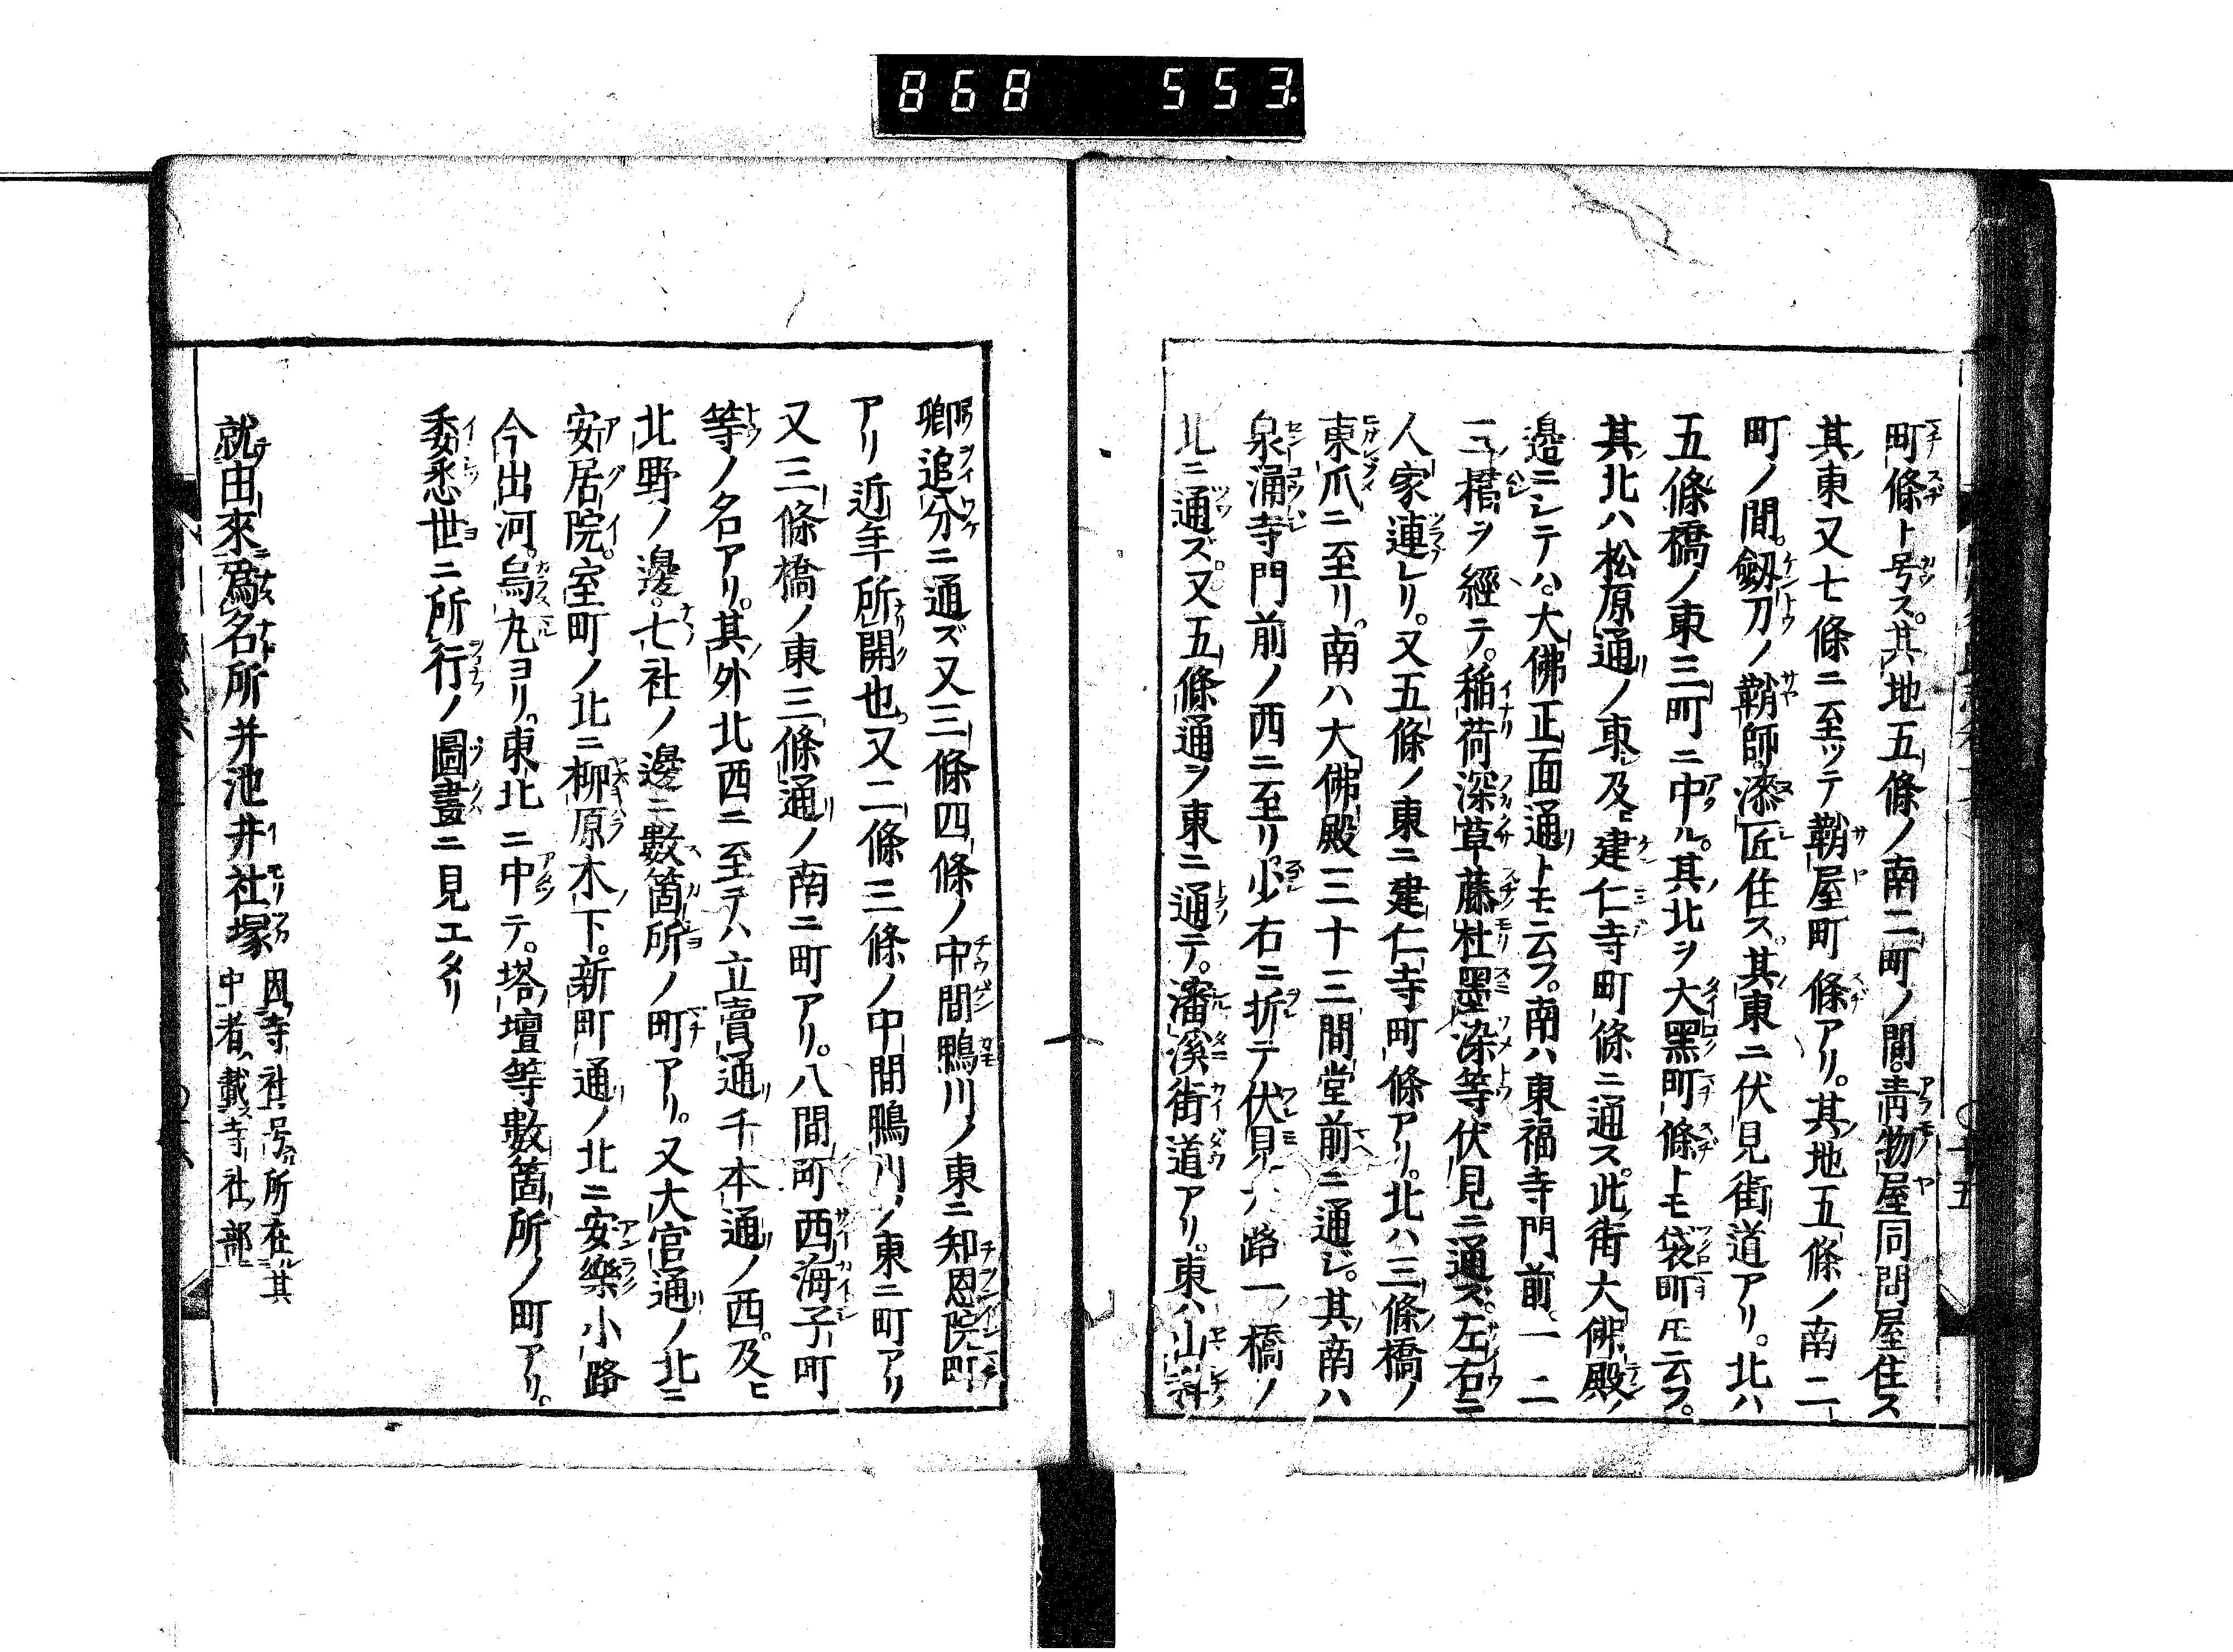 868 553
町條ト号ス。其地五條ノ南二町ノ間。青物屋同問屋住ス
其東又七條ニ至ツテ鞘屋町條アリ。其地五條ノ南二
町ノ間。劔刀ノ鞘師。漆匠住ス。其東ニ伏見街道アリ。北ハ
五條橋ノ東三町ニ中ル。其北ヲ大黑町條トモ袋町トモ云フ。
其北ハ松原通ノ東及ヒ建仁寺町條ニ通ス。此街大佛殿ノ
邊ニシテハ。大佛正面通トモ云フ。南ハ東福寺門前。一二
三ノ橋ヲ經テ。稲荷深草藤杜墨染等伏見ニ通ズ。左右ニ
人家連レリ。又五條ノ東ニ建仁寺町條アリ。北ハ三條橋ノ
東爪ニ至リ。南ハ大佛殿三十三間堂前ニ通シ。其南ハ
泉涌寺門前ノ西ニ至リ少右ニ折テ伏見路一ノ橋ノ
北ニ通ズ。又五條通ヲ東ニ通テ。瀋溪街道アリ。東ハ山科
郷追分ニ通ズ又三條四條ノ中間鴨川ノ東ニ知恩院町
アリ近年所開也。又二條三條ノ中間鴨川ノ東ニ町アリ
又三條橋ノ東三條通ノ南ニ町アリ。八間町西海子町
等ノ名アリ。其外北西ニ至テハ立賣通千本通ノ西及ヒ
北野ノ邊。七社ノ邊ニ數箇所ノ町アリ。又大宮通ノ北ニ
安居院。室町ノ北ニ柳原木ノ下。新町通ノ北ニ安樂小路
今出河。烏丸ヨリ。東北ニ中テ。塔ノ壇等數箇所ノ町アリ。
委悉世ニ所行ノ圖畫ニ見エタリ
就由來爲名所并池井社塚
因寺社号所在其
中者載寺社部